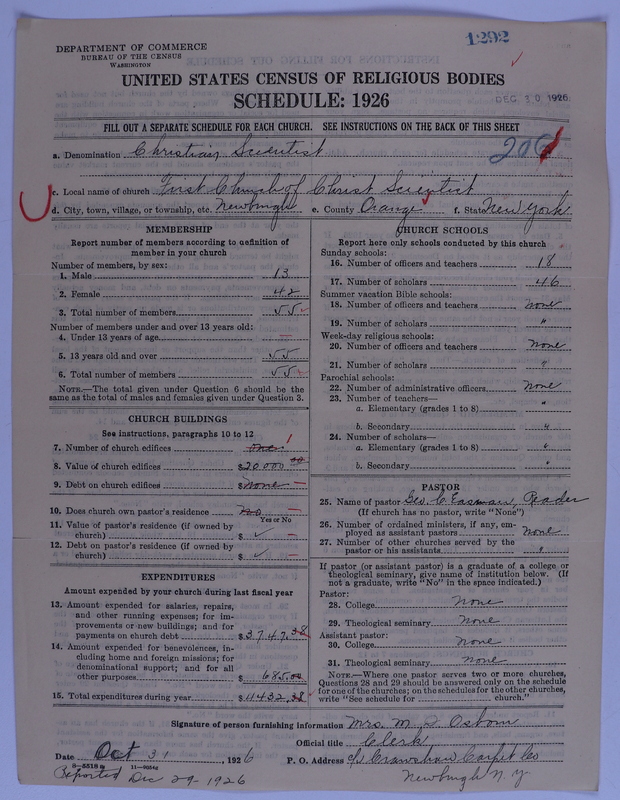 1292
DEPARTMENT OF COMMERCE
BUREAU OF THE CENSUS
WASHINGTON
UNITED STATES CENSUS OF RELIGIOUS BODIES
SCHEDULE: 1926
DEC 30 1926
FILL OUT A SEPARATE SCHEDULE FOR EACH CHURCH. SEE INSTRUCTIONS ON THE BACK OF THIS SHEET
206
a. Denomination Christian Scientist
c. Local name of church First Church of Christ Scientist
d. City, town, village, or township, etc. Newburgh e. County Orange f. State New York
MEMBERSHIP
Report number of members according to definition of
member in your church
Number of members, by sex:
1. Male 13
2. Female 42
3. Total number of members 55
Number of members under and over 13 years old:
4. Under 13 years of age —
5. 13 years old and over 55
6. Total number of members 55
NOTE.—The total given under Question 6 should be the
same as the total of males and females given under Question 3.
CHURCH BUILDINGS
See instructions, paragraphs 10 to 12
7. Number of church edifices one 1
8. Value of church edifices $20000 00
9. Debt on church edifices $none —
10. Does church own pastor's residence no —
Yes or No
11. Value of pastor's residence (if owned by
church) $ ✓ —
12. Debt on pastor's residence (if owned by
church) $ ✓ —
EXPENDITURES
Amount expended by your church during last fiscal year
13. Amount expended for salaries, repairs,
and other running expenses; for im-
provements or new buildings; and for
payments on church debt $3747.38
14. Amount expended for benevolences, in-
cluding home and foreign missions; for
denominational support; and for all
other purposes $685.00
15. Total expenditures during year $4432.38
CHURCH SCHOOLS
Report here only schools conducted by this church
Sunday schools:
16. Number of officers and teachers 18
17. Number of scholars 46
Summer vacation Bible schools:
18. Number of officers and teachers none
19. Number of scholars "
Week-day religious schools:
20. Number of officers and teachers none
21. Number of scholars "
Parochial schools:
22. Number of administrative officers none
23. Number of teachers—
a. Elementary (grades 1 to 8) "
b. Secondary "
24. Number of scholars—
a. Elementary (grades 1 to 8) "
b. Secondary "
PASTOR
25. Name of pastor Geo. C. Easman, Reader
(If church has no pastor, write "None")
26. Number of ordained ministers, if any, em-
ployed as assistant pastors none
27. Number of other churches served by the
pastor or his assistants "
If pastor (or assistant pastor) is a graduate of a college or
theological seminary, give name of institution below. (If
not a graduate, write "No" in the space indicated.)
Pastor:
28. College none
29. Theological seminary none
Assistant pastor:
30. College none
31. Theological seminary none
NOTE.—Where one pastor serves two or more churches,
Questions 28 and 29 should be answered only on the schedule
for one of the churches; on the schedules for the other churches,
write "See schedule for church."
Signature of person furnishing information Mrs. M. Osborn
Official title Clerk
Date Oct 31, 1926 P. O. Address c/o Crawshaw Carpet Co
8—5518
Reported Dec 29 - 1926
Newburgh N. Y